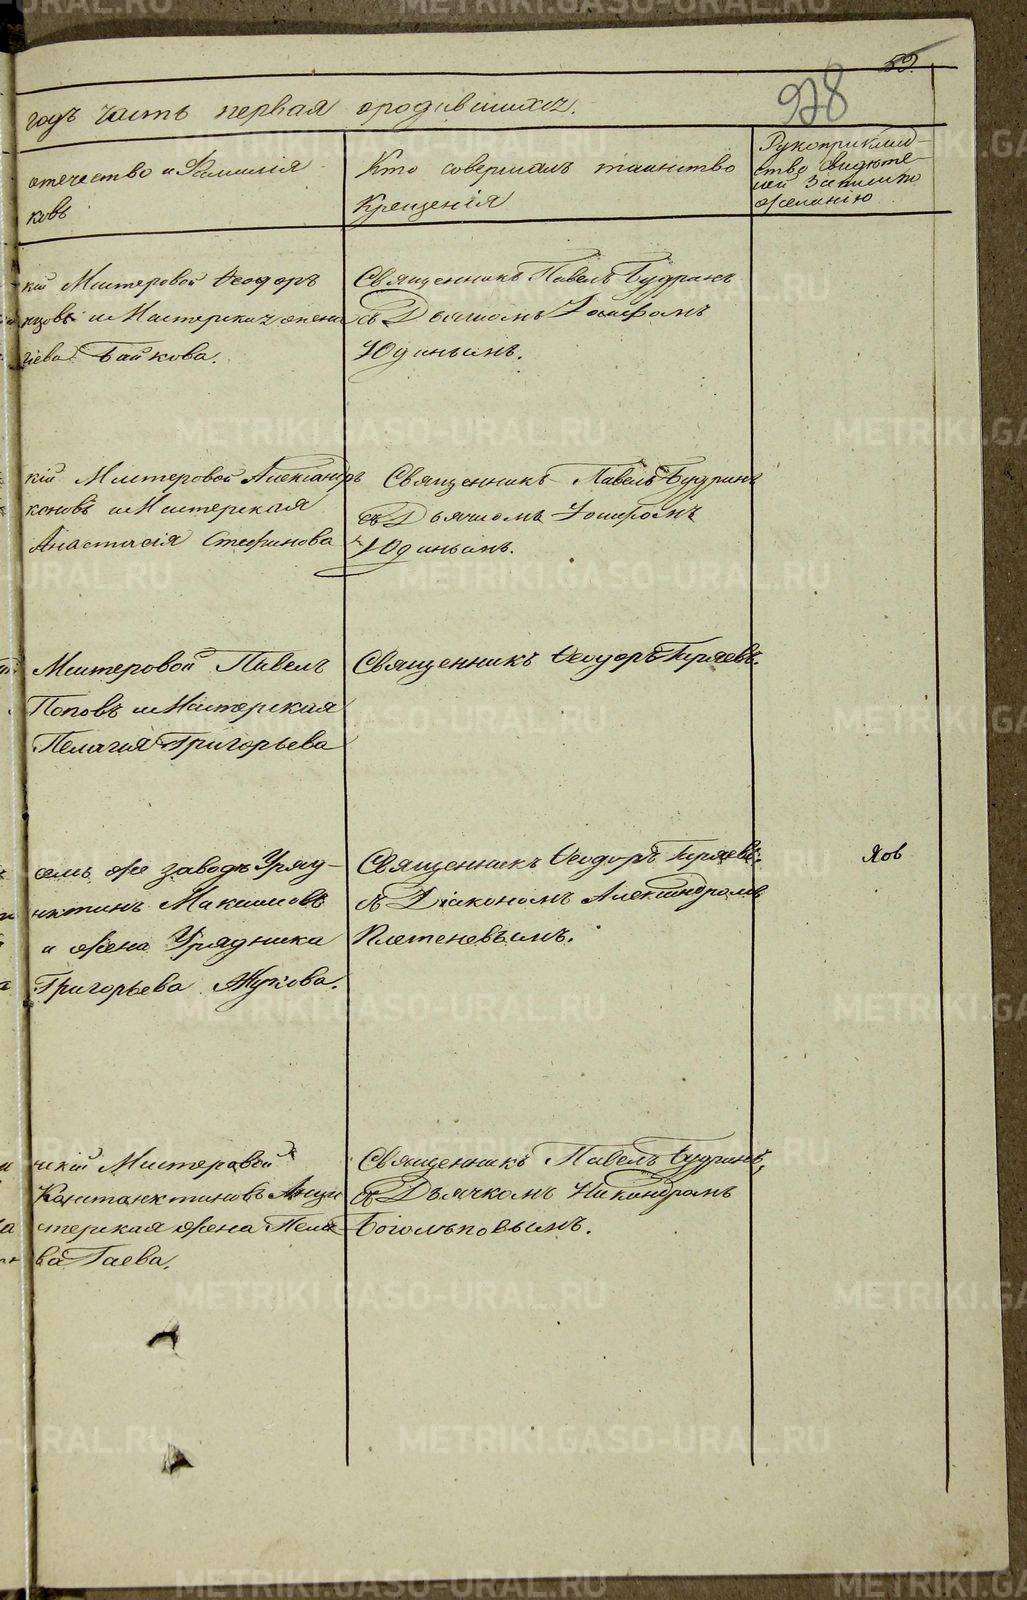 59.
928
годъ часть первая ородившихся.
отечество и Фамилія
ковъ
Кто совершалъ таинство
Крещенія
Рукоприклад-
ство свидѣте-
лей записи по
желанію
кій Мастеровой Ѳеодоръ
нцовъ и Мастерская жена
гіева Байкова.
Священникъ Павелъ Будринъ
съ Дьячкомъ Іосифомъ
Юдинымъ.
кій Мастеровой Александръ
коновъ и Мастерская
Анастасія Стефанова
Священникъ Павелъ Будринъ
съ Дьячкомъ Іосифомъ
Юдинымъ.
Мастеровой Павелъ
Поповъ и Мастерская
Пелагія Григорьева
Священникъ Ѳеодоръ Гиряевъ.
омъ же заводѣ Уряд-
нктинъ Максимовъ
и жена Урядника
Григорьева Жукова.
Священникъ Ѳеодоръ Гиряевъ.
съ Діакономъ Александромъ
Плетеневымъ.
Яов
нскій Мастеровой
Констанктиновъ
стерская жена Пела-
ва Гаева.
Священникъ Павелъ Будринъ,
съ Дьячкомъ Никандромъ
Боголѣповымъ.
METRIKI.GASO-URAL.RU